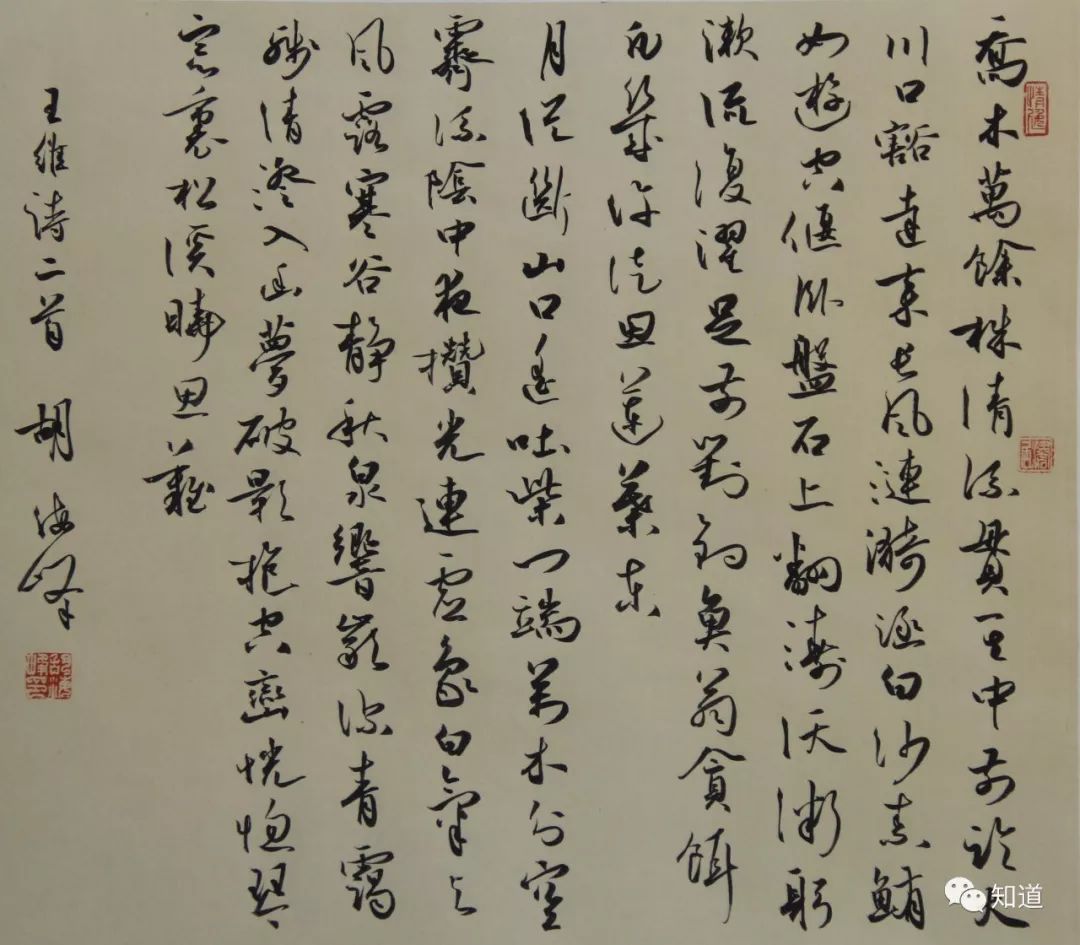 喬木萬餘株清流貫其中前臨大
川口豁達來長風漣漪涵白沙素鮪
如遊空偃臥盤石上翻濤沃微躬
漱流復濯足前對釣魚翁貪餌
凡幾許徒思蓮葉東
月從斷山口遙吐柴門端萬木分空
霽流陰中夜攢光連虛象白氣與
風露寒谷靜秋泉響巖深青靄
殘清澄入幽夢破影抱空巒恍惚琴
窗裏松溪曉思難
王維詩二首 胡海峰
知道